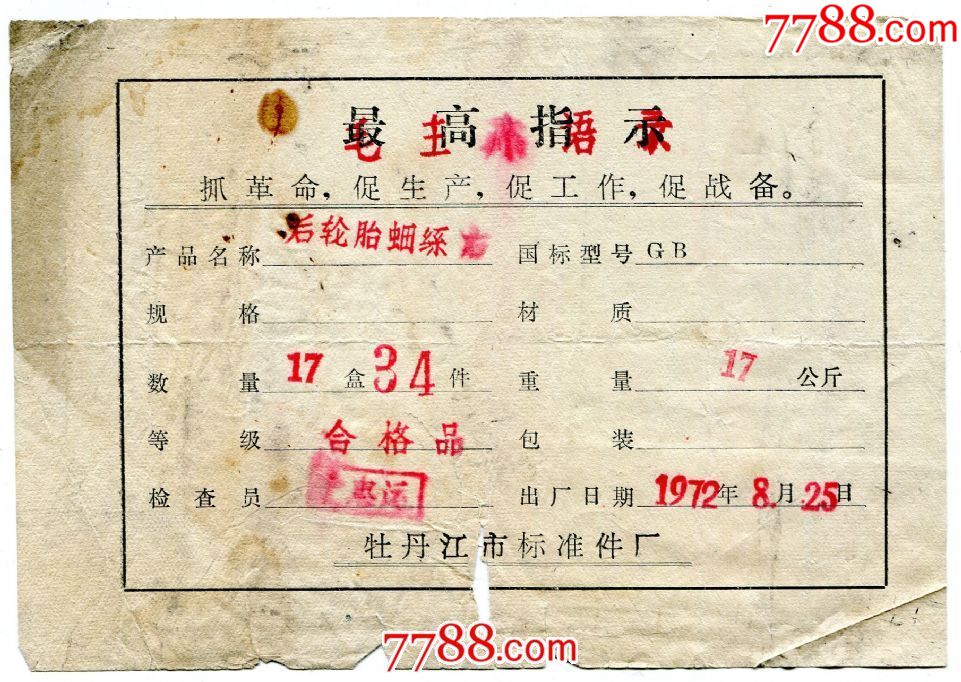 7788.com
最高指示
毛主席语录
抓革命，促生产，促工作，促战备。
产品名称 后轮胎蛔练 国标型号 GB
规格 材质
数量 17 盒 34 件 重量 17 公斤
等级 合格品 包装
检查员 惠运 出厂日期 1972年8月25日
牡丹江市标准件厂
7788.com